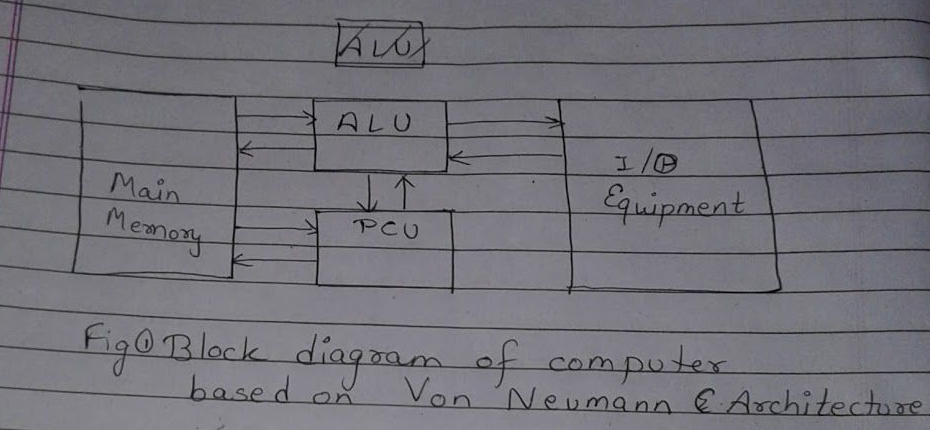 ALU
ALU
Main
Memory
PCU
I/O
Equipment
Fig ① Block diagram of computer
based on Von Neumann & Architecture